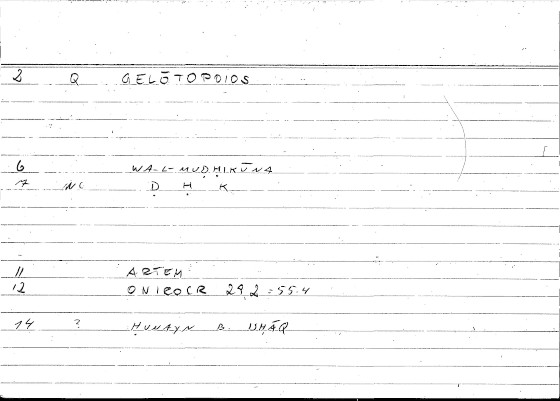 2 Q GELŌTOPOIOS
6 WA-L-MUḌḤIKŪNA
7 NC Ḍ Ḥ K
11 ARTEM
12 ONIROCR 29,2 = 55.4
14 ? ḤUNAYN B. ISḤĀQ